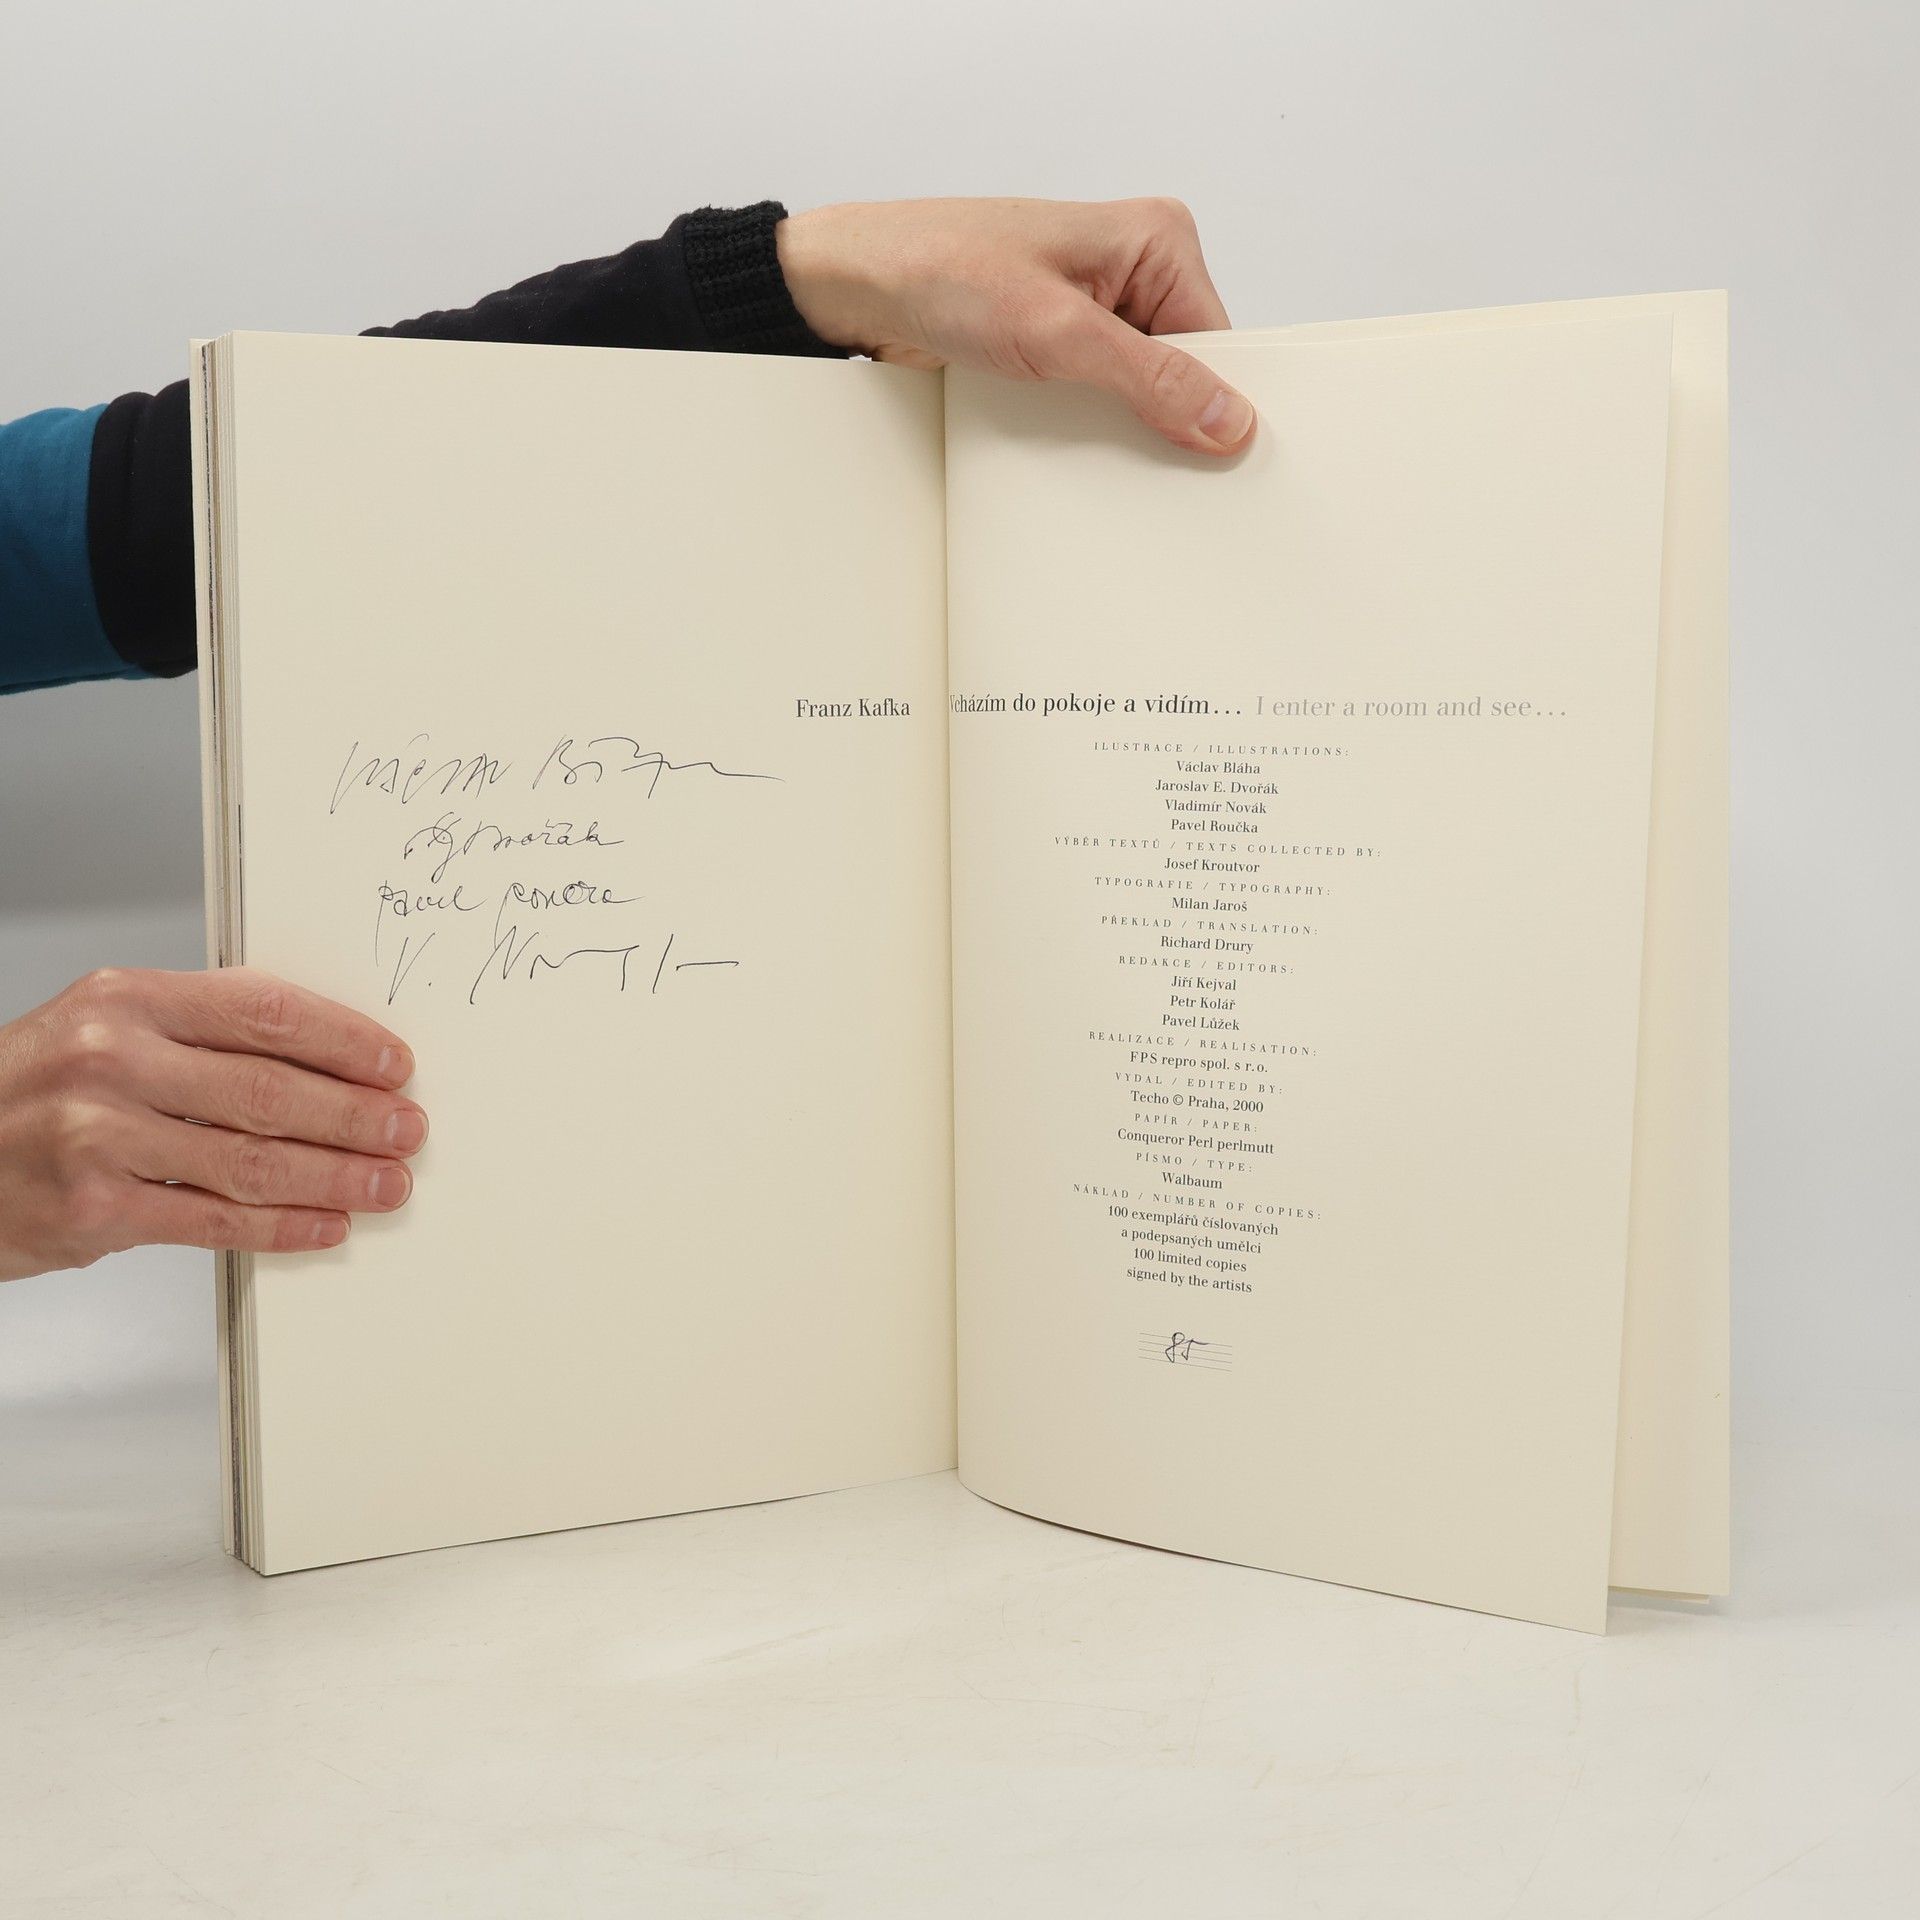 Franz Kafka
Václav Bláha
Dvořák
Pavel Roučka
V. Novák
Vcházím do pokoje a vidím... I enter a room and see...
ILUSTRACE / ILLUSTRATIONS:
Václav Bláha
Jaroslav E. Dvořák
Vladimír Novák
Pavel Roučka
VÝBĚR TEXTŮ / TEXTS COLLECTED BY:
Josef Kroutvor
TYPOGRAFIE / TYPOGRAPHY:
Milan Jaroš
PŘEKLAD / TRANSLATION:
Richard Drury
REDAKCE / EDITORS:
Jiří Kejval
Petr Kolář
Pavel Lůžek
REALIZACE / REALISATION:
FPS repro spol. s r.o.
VYDAL / EDITED BY:
Techo © Praha, 2000
PAPÍR / PAPER:
Conqueror Perl perlmutt
PÍSMO / TYPE:
Walbaum
NÁKLAD / NUMBER OF COPIES:
100 exemplářů číslovaných
a podepsaných umělci
100 limited copies
signed by the artists
85